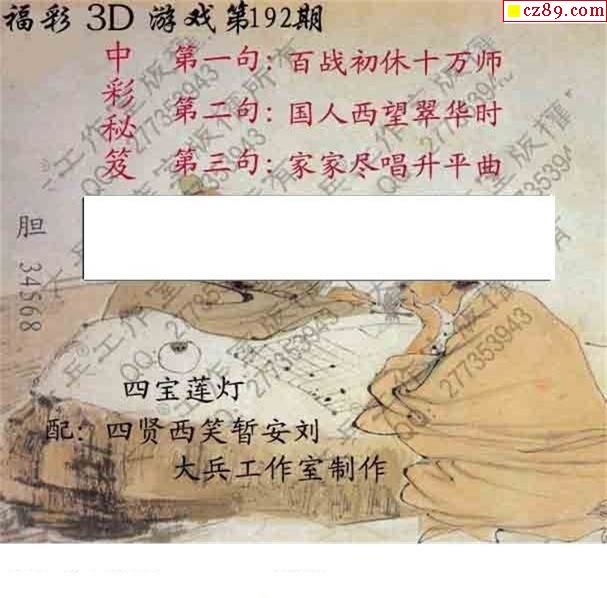 福彩 3D 游戏第192期
cz89.com
中彩秘笈
第一句：百战初休十万师
第二句：国人西望翠华时
第三句：家家尽唱升平曲
胆 34568
四宝莲灯
配：四贤西笑暂安刘
大兵工作室制作
大兵®工作室版权所有
QQ：277353943